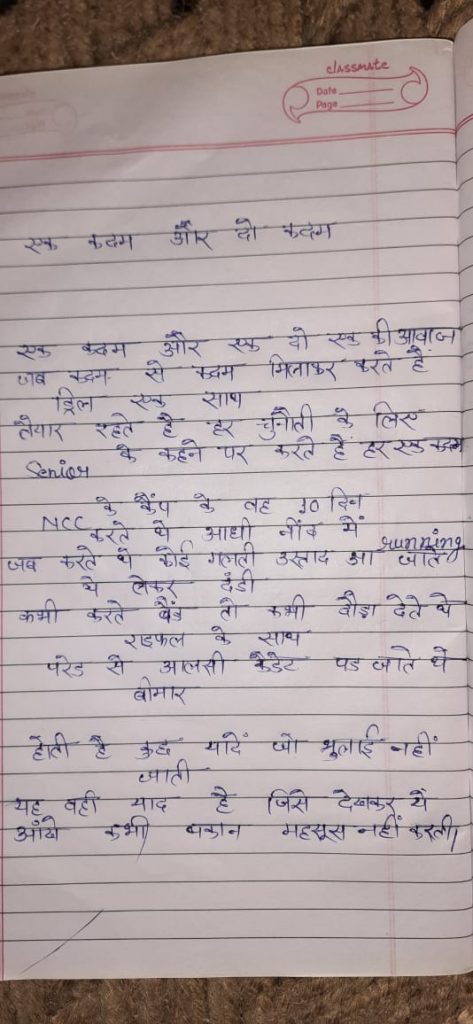 classmate
Date
Page
एक कदम और दो कदम
एक कदम और एक दो एक की आवाज
जब कदम से कदम मिलाकर करते हैं
ड्रिल एक साथ
तैयार रहते है हर चुनौती के लिए
Senior के कहने पर करते हैं हर एक कदम
NCC के कैंप के वह 10 दिन
करते थे आधी नींद में running
जब करते थे कोई गलती उस्ताद आ जाते
थे लेकर डंडी
कभी करते बैंड तो कभी दौड़ा देते थे
राइफल के साथ
परेड से आलसी कैडेट पड जाते थे
बीमार
होती है कुछ यादें जो भुलाई नहीं
जाती
यह वही याद है जिसे देखकर ये
आँखे कभी थकान महसूस नहीं करती।